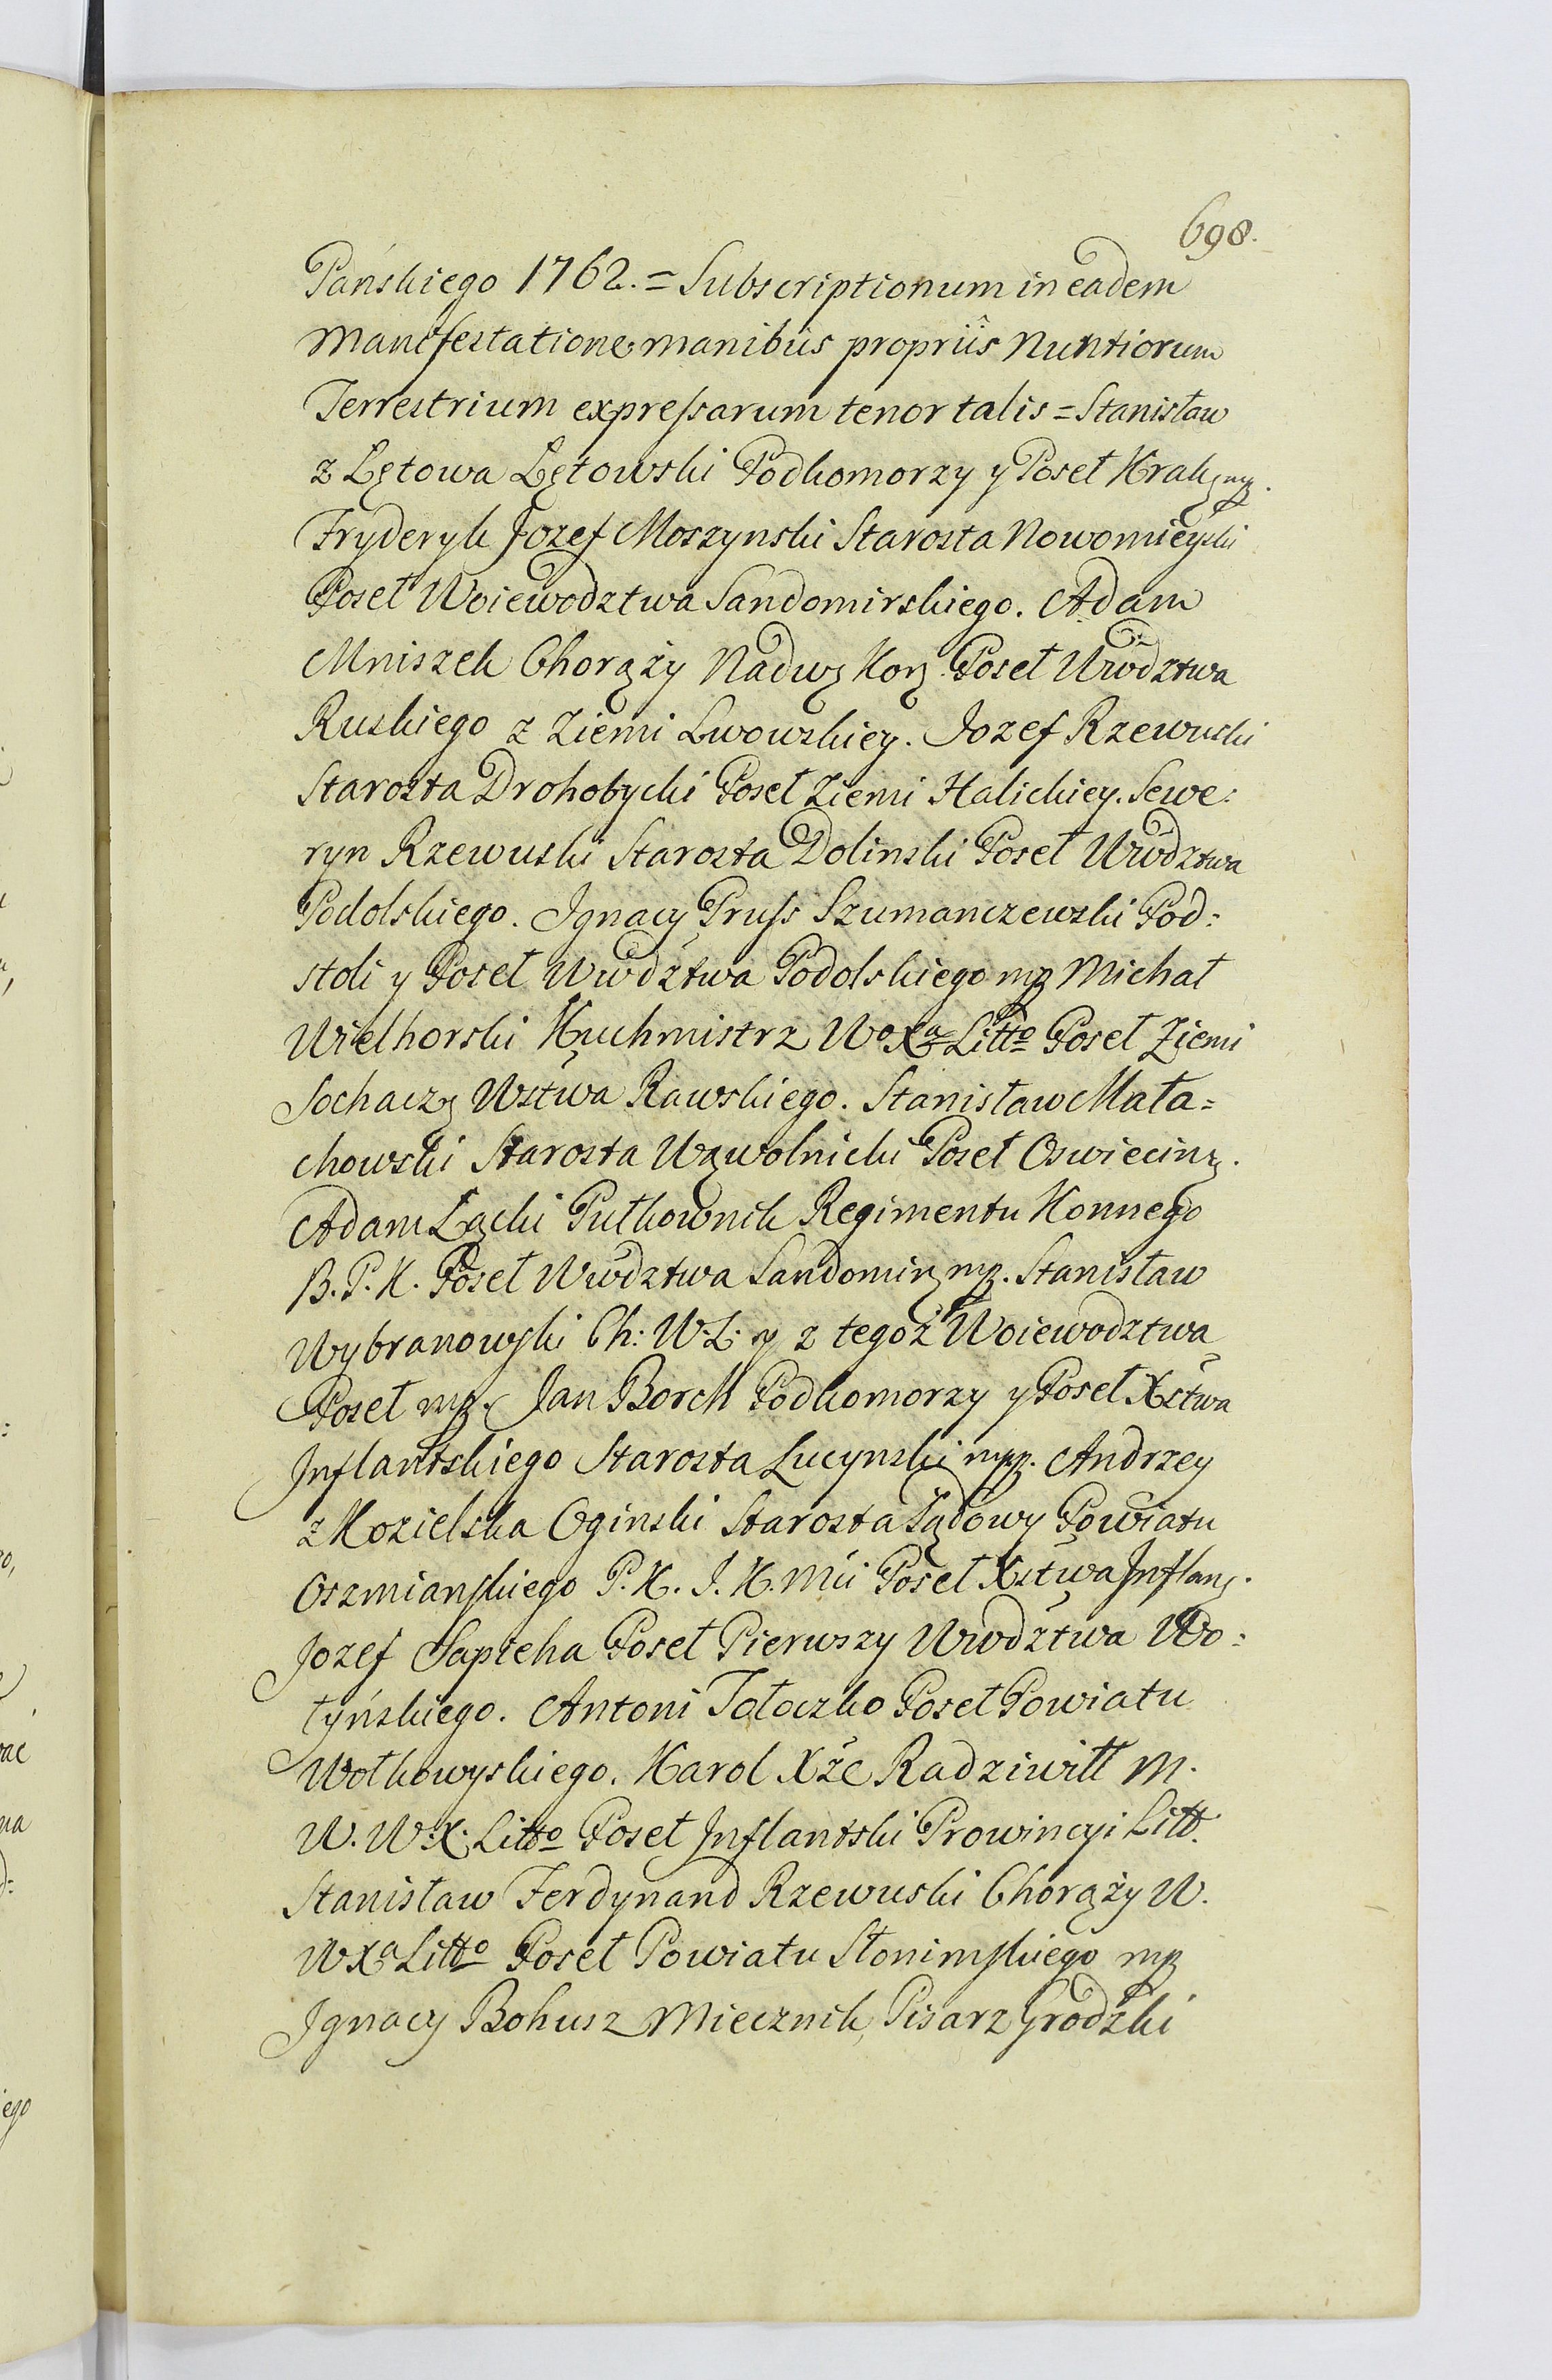 698.
Pańskiego 1762. = Subscriptionum in eadem
Manifestatione manibus propriis Nuntiorum
Terrestrium expressarum tenor talis = Stanisław
z Łętowa Łętowski Podkomorzy y Poseł Krak mp.
Fryderyk Jozef Moszynski Starosta Nowomieyski
Poseł Woiewodztwa Sandomirskiego. Adam
Mniszek Chorąży Nadw Kor. Poseł Wwodztwa
Ruskiego z Ziemi Lwowskiey. Jozef Rzewuski
Starosta Drohobycki Poseł Ziemi Halickiey. Sewe:
ryn Rzewuski Starosta Dolinski Poseł Wwodztwa
Podolskiego. Ignacy Pruss Szumanczewski Pod:
stoli y Poseł Wwdztwa Podolskiego mp Michał
Wielhorski Kuchmistrz WoXa Litto Poseł Ziemi
Sochacz Wstwa Rawskiego. Stanisław Mała=
chowski Starosta Wąwolnicki Poseł Oswiecim.
Adam Łącki Pułkownik Regimentu Konnego
B. P. K. Poseł Wwdztwa Sandomir mp. Stanisław
Wybranowski Ch: W: L: y z tegoż Woiewodztwa
Poseł mp. Jan Borch Podkomorzy y Poseł Xstwa
Inflantskiego Starosta Lucynski mpp. Andrzey
z Kozielska Oginski Starosta Sądowy Powiatu
Oszmianskiego P. K. J. K. Mci Poseł Xstwa Inflan.
Jozef Sapieha Poseł Pierwszy Wwdztwa Wo:
łyńskiego. Antoni Tołoczko Poseł Powiatu
Wołkowyskiego. Karol Xże Radziwiłł M.
W. W. X. Litto Poseł Inflantski Prowincyi Litt.
Stanisław Ferdynand Rzewuski Chorąży W.
WXa Litto Poseł Powiatu Słonimskiego mp
Ignacy Bohusz Miecznik, Pisarz Grodzki